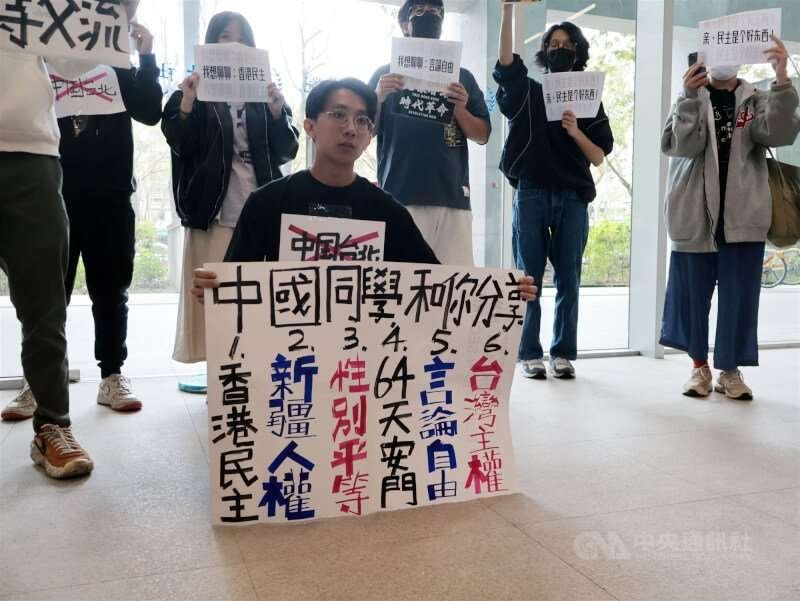 等交流
中国台北
我想聊聊：香港民主
我想聊聊：言論自由
時代革命
亲，民主是个好东西！
亲，民主是个好东西！
中国台北
中國同學和你分享
1.香港民主
2.新疆人權
3.性別平等
4.64天安門
5.言論自由
6.台灣主權
CNA 中央通訊社